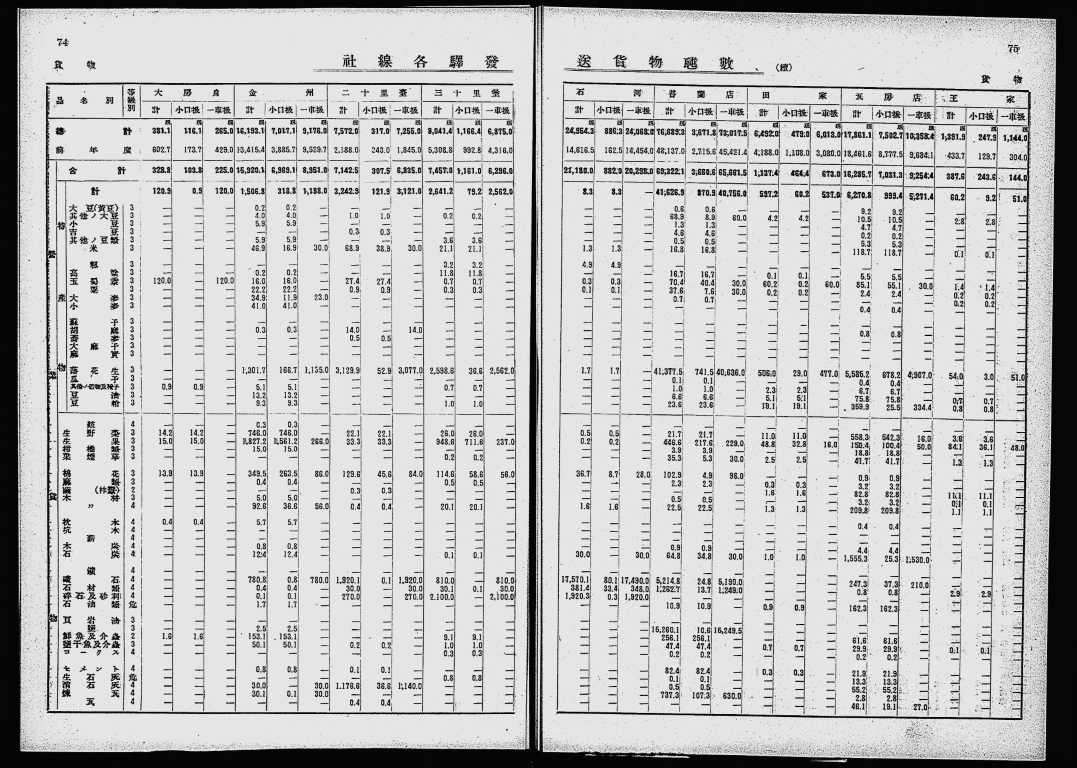 74
貨物
社線各驛發
品名別 等級別 大房身 金州 二十里臺 三十里堡
計 小口扱 一車扱 計 小口扱 一車扱 計 小口扱 一車扱 計 小口扱 一車扱
總計 381.1 116.1 265.0 16,193.1 7,017.1 9,176.0 7,572.0 317.0 7,255.0 8,041.4 1,166.4 6,875.0
前年度 602.7 173.7 429.0 13,415.4 3,885.7 9,529.7 2,188.0 343.0 1,845.0 5,308.8 992.8 4,316.0
合計 328.8 103.8 225.0 15,920.1 6,969.1 8,951.0 7,142.5 307.5 6,835.0 7,457.0 1,161.0 6,296.0
計 120.9 0.9 120.0 1,506.8 318.8 1,188.0 3,242.9 121.9 3,121.0 2,641.2 79.2 2,562.0
大豆(黄豆) 3 — — — 0.2 0.2
其他ノ大豆 3 — — — 4.0 4.0 — 1.0 1.0 — 0.2 0.2
小豆 3 — — — 5.9 5.9
吉豆 3 — — — — — — 0.3 0.3
其他ノ豆類 3 — — — 5.9 5.9 — — — — 3.6 3.6
米 3 — — — 46.9 16.9 30.0 68.9 38.9 30.0 21.1 21.1
粟 3 — — — — — — — — — 3.2 3.2
高粱 3 — — — 0.2 0.2 — — — — 11.8 11.8
玉蜀黍 3 120.0 — 120.0 16.0 16.0 — 27.4 27.4 — 0.7 0.7
3 — — — 22.2 22.2 — 0.9 0.9 — 0.3 0.3
大麥 3 — — — 34.9 11.9 23.0
小麥 3 — — — 41.0 41.0
蘇子 3
胡麻 3 — — — 0.3 0.3 — 14.0 — 14.0
蕎麥 3 — — — — — — 0.5 0.5
大麻子 3
麻實 3
落花生 3 — — — 1,301.7 166.7 1,135.0 3,129.9 52.9 3,077.0 2,598.6 36.6 2,562.0
瓜子 3
3 0.9 0.9 — 5.1 5.1 — — — — 0.7 0.7
豆油 3 — — — 13.2 13.2
豆粕 3 — — — 9.3 9.3 — — — — 1.0 1.0
麩 4 — — — 0.3 0.3
生野菜 3 14.2 14.2 — 746.0 746.0 — 22.1 22.1 — 26.0 26.0
生果 3 15.0 15.0 — 1,827.2 1,561.2 266.0 33.3 33.3 — 948.6 711.6 237.0
柑橘類 3 — — — 15.0 15.0
葉煙草 3 — — — — — — — — — 0.2 0.2
棉花 3 13.9 13.9 — 349.5 263.5 86.0 129.6 45.6 84.0 114.6 58.6 56.0
麻類 3 — — — 0.4 0.4 — — — — 0.5 0.5
繭(柞蠶) 2 — — — — — — 0.3 0.3
木材 3 — — — 5.0 5.0
〃 4 — — — 92.6 36.6 56.0 0.4 0.4 — 20.1 20.1
枕木 4 0.4 0.4 — 5.7 5.7
坑木 4
薪 4
木炭 4 — — — 0.8 0.8
石炭 4 — — — 12.4 12.4 — — — — 0.1 0.1
鐵 4
鑛石 4 — — — 780.8 0.8 780.0 1,920.1 0.1 1,920.0 810.0 — 810.0
石材類 4 — — — 0.4 0.4 — 30.0 — 30.0 30.1 0.1 30.0
碎石及砂利 4 — — — 0.1 0.1 — 270.0 — 270.0 2,100.0 — 2,100.0
石油類 危 — — — 1.7 1.7
頁岩油 3
鹽 3 — — — 2.5 2.5
鮮魚及介蟲 2 1.6 1.6 — 153.1 153.1 — — — — 9.1 9.1
鹽干魚及介蟲 3 — — — 50.1 50.1 — 0.2 0.2 — 1.0 1.0
コークス 4 — — — — — — — — — 0.3 0.3
セメント 4 — — — 0.8 0.8 — 0.1 0.1
生石灰 危 — — — — — — — — — 0.8 0.8
消石灰 4 — — — 30.0 — 30.0 1,176.6 36.6 1,140.0
煉瓦 4 — — — 30.1 0.1 30.0
瓦 4 — — — — — — 0.4 0.4
75
貨物
送貨物噸數 (續)
石河 普蘭店 田家 瓦房店 王家
計 小口扱 一車扱 計 小口扱 一車扱 計 小口扱 一車扱 計 小口扱 一車扱 計 小口扱 一車扱
24,954.3 886.3 24,068.0 76,689.3 3,671.8 73,017.5 6,492.0 479.0 6,013.0 17,861.1 7,502.7 10,358.4 1,391.9 247.9 1,144.0
14,616.5 162.5 14,454.0 48,137.0 2,715.6 45,421.4 4,188.0 1,108.0 3,080.0 18,461.6 8,777.5 9,684.1 433.7 129.7 304.0
21,180.0 882.0 20,298.0 69,322.1 3,660.6 65,661.5 1,137.4 464.4 673.0 16,285.7 7,031.3 9,254.4 387.6 243.6 144.0
8.3 8.3 — 41,626.9 870.9 40,756.0 597.2 60.2 537.0 6,270.8 999.4 5,271.4 60.2 9.2 51.0
0.6 0.6 9.2 9.2
68.9 8.9 60.0 4.2 4.2 10.5 10.5 2.8 2.8
1.3 1.3 4.7 4.7
4.6 4.6 0.2 0.2
0.5 0.5 5.3 5.3
1.3 1.3 16.8 16.8 118.7 118.7 0.1 0.1
4.9 4.9
16.7 16.7 0.1 0.1 5.5 5.5
0.3 0.3 70.4 40.4 30.0 60.2 0.2 60.0 85.1 55.1 30.0 1.4 1.4
0.1 0.1 37.6 7.6 30.0 0.2 0.2 2.4 2.4 0.2 0.2
0.7 0.7 0.2 0.2
0.4 0.4
0.8 0.8
1.7 1.7 41,377.5 741.5 40,636.0 506.0 29.0 477.0 5,585.2 678.2 4,907.0 54.0 3.0 51.0
0.1 0.1 0.4 0.4
1.0 1.0 2.3 2.3 6.7 6.7
6.6 6.6 5.1 5.1 75.8 75.8 0.7 0.7
23.6 23.6 19.1 19.1 359.9 25.5 334.4 0.8 0.8
0.5 0.5 21.7 21.7 11.0 11.0 558.3 542.3 16.0 3.6 3.6
0.2 0.2 446.6 217.6 229.0 48.8 32.8 16.0 150.4 100.4 50.0 84.1 36.1 48.0
3.9 3.9 18.8 18.8
35.3 5.3 30.0 2.5 2.5 41.7 41.7 1.3 1.3
36.7 8.7 28.0 102.9 4.9 98.0 0.9 0.9
2.3 2.3 0.3 0.3 3.2 3.2
1.6 1.6 82.8 82.8 11.1 11.1
0.5 0.5 3.2 3.2 0.1 0.1
1.6 1.6 22.5 22.5 1.3 1.3 209.8 209.8 1.1 1.1
0.4 0.4
0.9 0.9 4.4 4.4
30.0 30.0 64.8 34.8 30.0 1.0 1.0 1,555.3 25.3 1,530.0
17,570.1 80.1 17,490.0 5,214.8 24.8 5,190.0 247.3 37.3 210.0
381.4 33.4 348.0 1,262.7 13.7 1,249.0 0.8 0.8 2.9 2.9
1,920.3 0.3 1,920.0
10.9 10.9 0.9 0.9 162.3 162.3
15,260.1 10.6 15,249.5
256.1 256.1 61.6 61.6
47.4 47.4 0.7 0.7 29.9 29.9 0.1 0.1
0.2 0.2 0.2 0.2
82.4 82.4 0.3 0.3 21.9 21.9
0.1 0.1 13.3 13.3
0.5 0.5 55.2 55.2
737.3 107.3 630.0 2.8 2.8
46.1 19.1 27.0